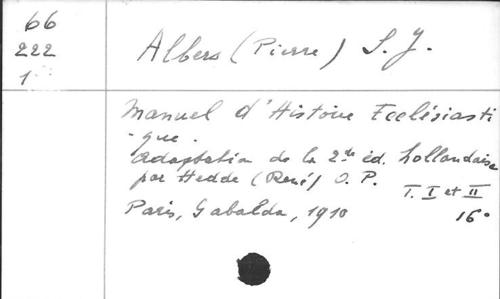 66
222
1
Albers (Pierre) S. J.
Manuel d'Histoire Ecclésiasti
- que.
Adaptation de la 2de éd. hollandaise
par Hedde (René) O. P.
T. I et II
Paris, Gabalda, 1910
16°